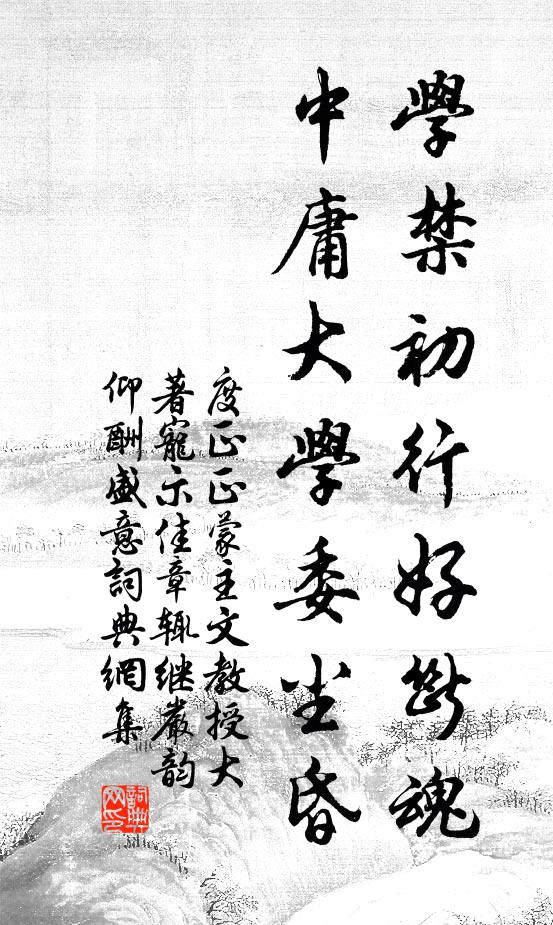 學禁初行好斷魂
中庸大學委尘昏
度正正蒙主文教授大
著寵示佳章辄继嚴韵
仰酬盛意詞典網集